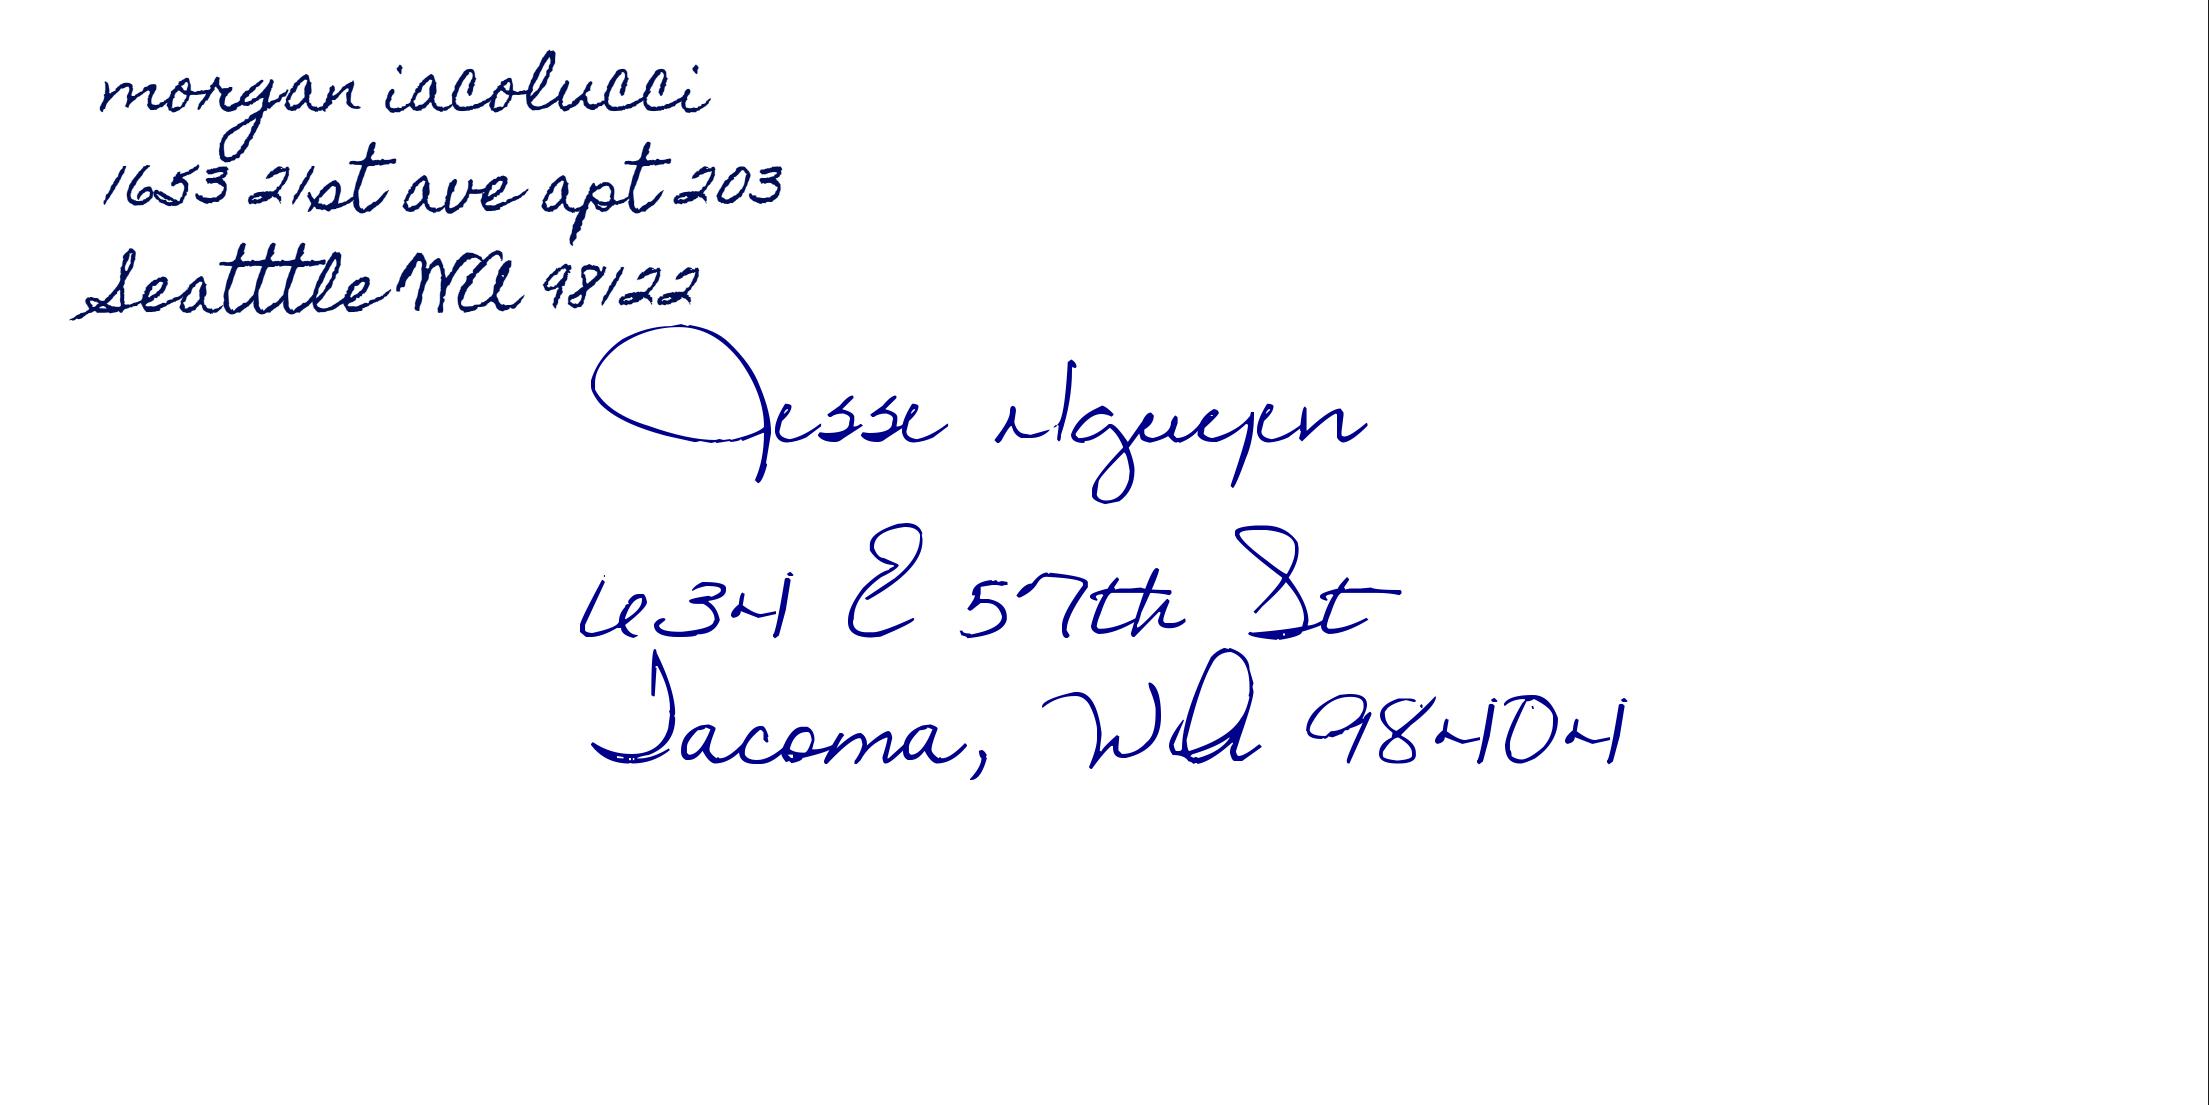 morgan iacolucci
1653 21st ave apt 203
Seatttle WA 98122
Jesse Nguyen
634 E 57th St
Tacoma, WA 98404